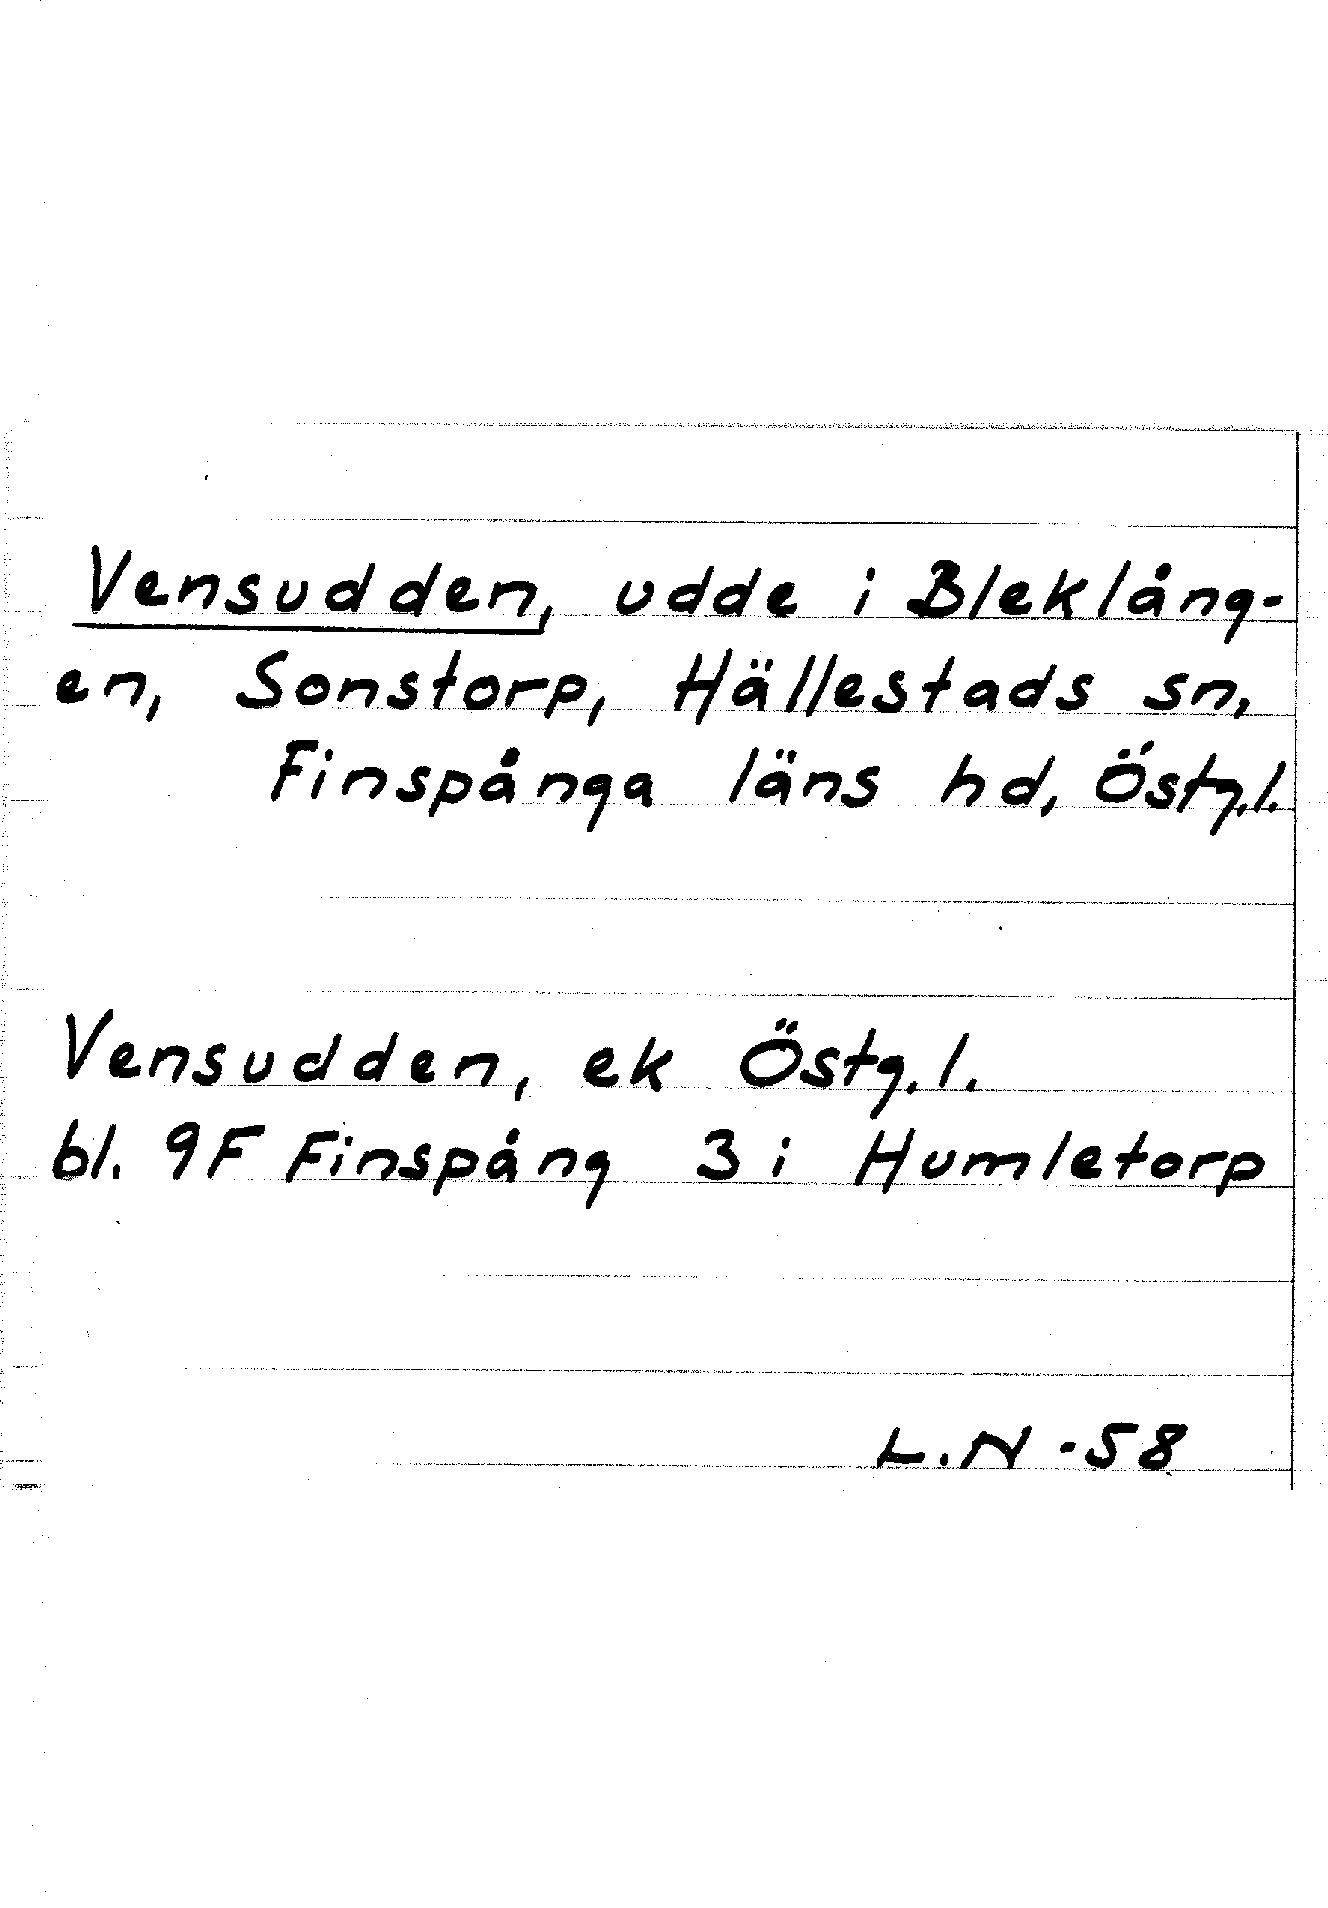 Vensudden, udde i Bleklång-
en, Sonstorp, Hällestads sn,
Finspånga läns hd, Östg.l.
Vensudden, ek Östg.l.
bl. 9F Finspång 3 i Humletorp
L.N -58